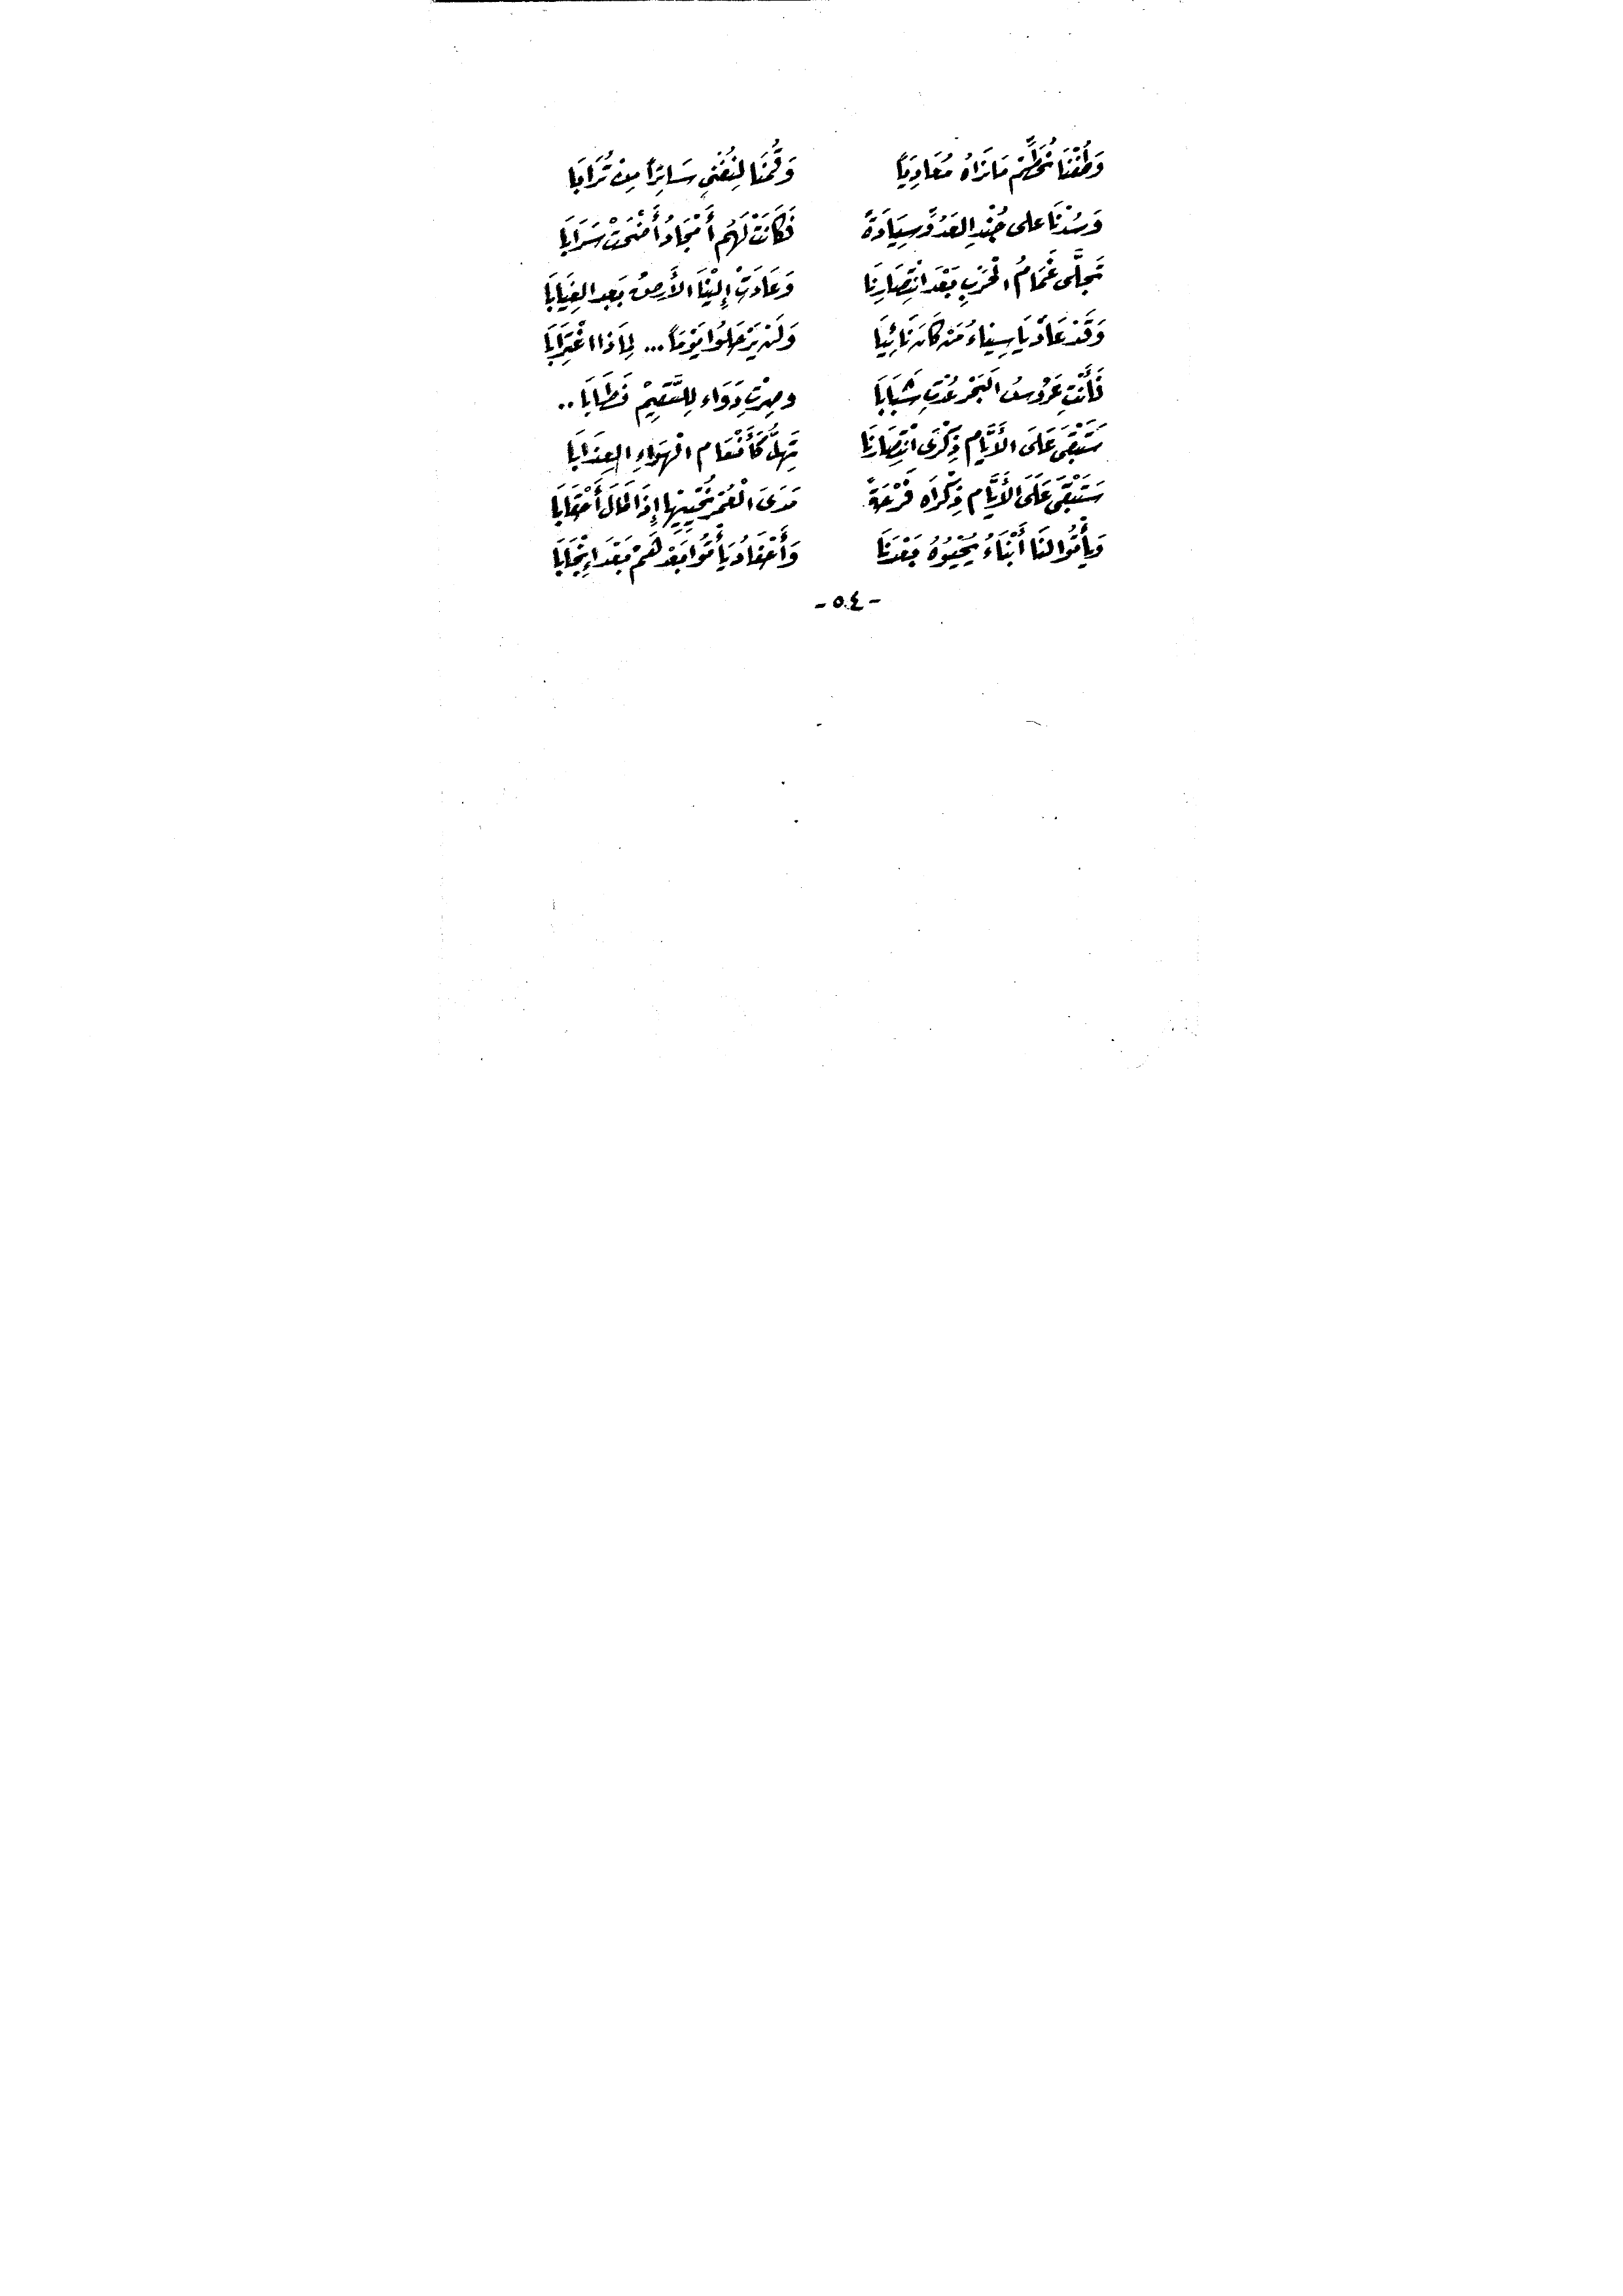 وَطُفْنَا نُحَطِّمْ مَا نَرَاهُ مُعَادِيَاً وَقُمْنَا لِنُفْنِي سَائِراً مِنْ تُرَابَا
وَسُدْنَا على جُنْدِ العَدُوِّ سِيَادَةً فَكَانَتْ لَهُم أَمْجَادُ أَضْحَتْ سَرَابَا
تَجَلَّى غَمَامُ الْحَرْبِ بَعْدَ انْتِصَارِنَا وَعَادَتِ إِلَيْنَا الأَرضُ بَعد الغِيَابَا
وَقَدْ عَادَ يَا سِينَاءُ مَنْ كَانَ نَائِيَا وَلَنْ يَرْحَلُوا يَوْمَاً ... لِمَاذَا اغْتِرَابَا
فَأَنْتِ عَرُوسُ الْبَحْرِ عُدْتِ شَبَابَا وصِرْتِ دَوَاء لِلسَّقِيمْ فَطَابَا ..
سَتَبْقَى عَلَى الأَيَّامِ ذِكْرَى انْتِصَارِنَا تَهِلُّ كَأَنْغَام الْهَوَاءِ العِذَابَا
سَتَبْقَى عَلَى الأَيَّامِ ذِكْرَاه فَرْحَةً مَدَى الْعُمْرِ نُحْيِيهَا إِذَا طَالَ أَحْقَابَا
وَيَأْتُوا لنَا أَبْنَاءُ يُحْيُوهُ بَعْدَنَا وَأَحْفَادُ يَأْتُوا بَعْدهَمْ بَعْدَ إِنْجَابَا
- ٥٤ -